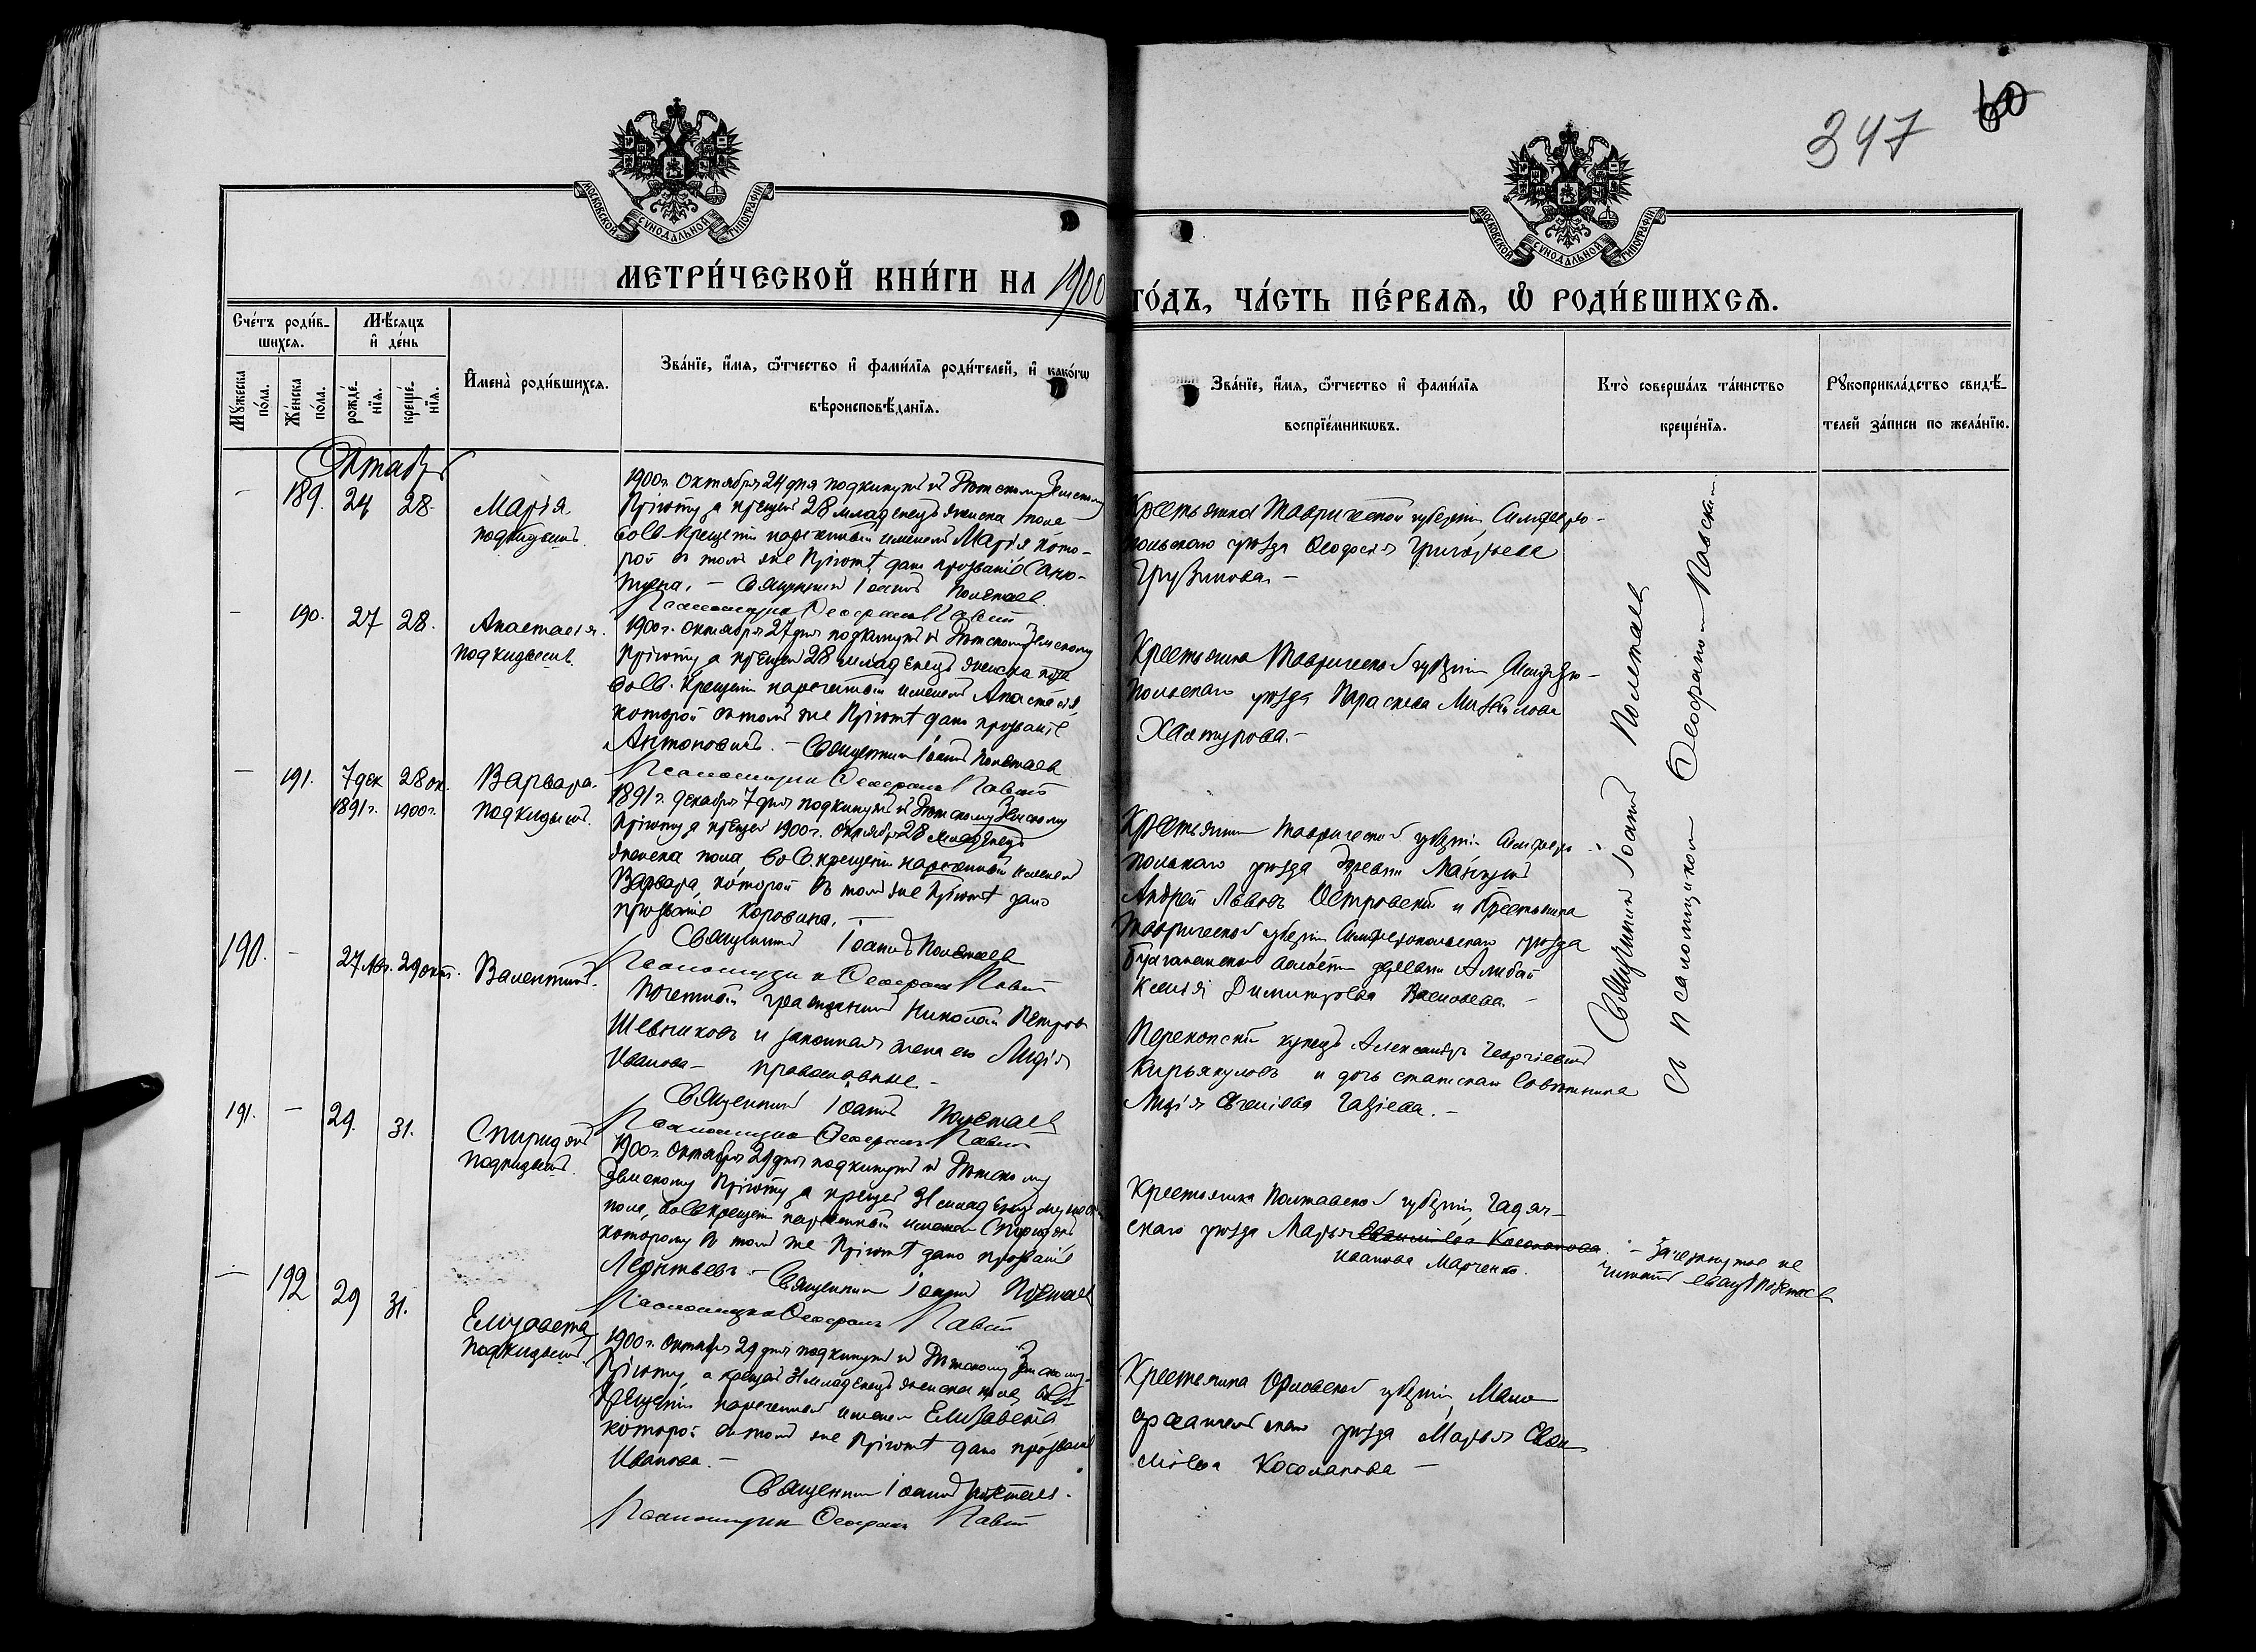 347
60
МОСКОВСКОЙ СѴНОДАЛЬНОЙ ТИПОГРАФІИ
МОСКОВСКОЙ СѴНОДАЛЬНОЙ ТИПОГРАФІИ
МЕТРИ́ЧЕСКОЙ КНИ́ГИ НА 1900
ГО́ДЪ, ЧА́СТЬ ПЕ́РВАѦ, Ѡ҆ РОДИ́ВШИХСѦ.
Сче́тъ роди́в-
шихсѧ.
Мѣ́сѧцъ
и҆ де́нь
Мꙋ́жеска по́ла.
Же́нска по́ла.
рожде́-
нїѧ.
креще́-
нїѧ.
И҆мена̀ роди́вшихсѧ.
Зва́нїе, и҆́мѧ, ѻ҆́тчество и҆ фами́лїѧ роди́телей, и҆ како́гѡ
вѣроисповѣ́данїѧ.
Зва́нїе, и҆́мѧ, ѻ҆́тчество и҆ фами́лїѧ
воспрїе́мникѡвъ.
Кто̀ соверша́лъ та́инство
креще́нїѧ.
Рꙋкоприкла́дство свидѣ́-
телей за́писи по жела́нїю.
Октябрь
— 189. 24 28.
Марія
подкидышъ.
1900 г. Октября 24 дня подкинутъ къ Дѣтскому Земскому
Пріюту а крещенъ 28 младенецъ женска пола
во св. крещеніи нареченный именемъ Марія кото-
рой въ томъ же Пріютѣ дано прозваніе
Священникъ Іоаннъ Полетаевъ.
Псаломщикъ Ѳеофанъ Павскій
Крестьянка Таврической губерніи, Симферо-
польскаго уѣзда Ѳеодосія Григорьева
Грузинова. —
— 190. 27 28.
Анастасія.
подкидышъ.
1900 г. Октября 27 дня подкинутъ къ Дѣтскому Земскому
Пріюту а крещенъ 28 младенецъ женска пола
во св. крещеніи нареченный именемъ Анастасія,
которой въ томъ же Пріютѣ дано прозваніе
Антоновичъ. — Священникъ Іоаннъ Полетаевъ
Псаломщикъ Ѳеофанъ Павскій
Крестьянка Таврической губерніи Симферо-
польскаго уѣзда Параскева Михайлова
Хахтурова. —
— 191. 7 дек 28 ок.
1891 г. 1900 г.
Варвара.
подкидышъ.
1891 г. декабря 7 дня подкинутъ къ Дѣтскому Земскому
Пріюту а крещенъ 1900 г. Октября 28 младенецъ
женска пола, во св. крещеніи нареченный именемъ
Варвара, которой въ томъ же Пріютѣ дано
прозваніе Коровина. —
Священникъ Іоаннъ Полетаевъ
Псаломщикъ Ѳеофанъ Павскій
Крестьянинъ Таврической губерніи Симферо-
польскаго уѣзда деревни Мангушъ
Андрей Львовъ Островскій и крестьянка
Таврической губерніи Симферопольскаго уѣзда
Булганакской волости деревни
Ксенія Димитріева Васильева. —
190. — 27 Авг. 29 окт.
Валентинъ.
Почетный гражданинъ Николай Петровъ
Шевняковъ и законная жена его Лидія
Иванова — православные. —
Священникъ Іоаннъ Полетаевъ
Псаломщикъ Ѳеофанъ Павскій
Перекопскій купецъ Александръ Георгіевичъ
Кирьякуловъ и дочь статскаго Совѣтника
Лидія Евгеніева
191. — 29. 31.
Спиридонъ
подкидышъ.
1900 г. Октября 29 дня подкинутъ къ Дѣтскому
Земскому Пріюту а крещенъ 31 младенецъ мужеска
пола, во св. крещеніи нареченный именемъ Спиридонъ
которому въ томъ же Пріютѣ дано прозваніе
Леонтьевъ. — Священникъ Іоаннъ Полетаевъ
Псаломщикъ Ѳеофанъ Павскій
Крестьянка Полтавской губерніи, Гадяч-
скаго уѣзда Марья Косолапова. — Зачеркнутое не
Иванова Марченко.
читать свящ. І. Полетаевъ
— 192 29 31.
Елизавета
подкидышъ.
1900 г. Октября 29 дня подкинутъ къ Дѣтскому Земскому
Пріюту, а крещенъ 31 младенецъ женска пола, во св.
крещеніи нареченный именемъ Елизавета
которой въ томъ же Пріютѣ дано прозваніе
Иванова. —
Священникъ Іоаннъ Полетаевъ.
Псаломщикъ Ѳеофанъ Павскій
Крестьянка Орловской губерніи, Мало-
архангельскаго уѣзда Марья
Косолапова —
Священникъ Іоаннъ Полетаевъ
съ псаломщикомъ Ѳеофаномъ Павскимъ